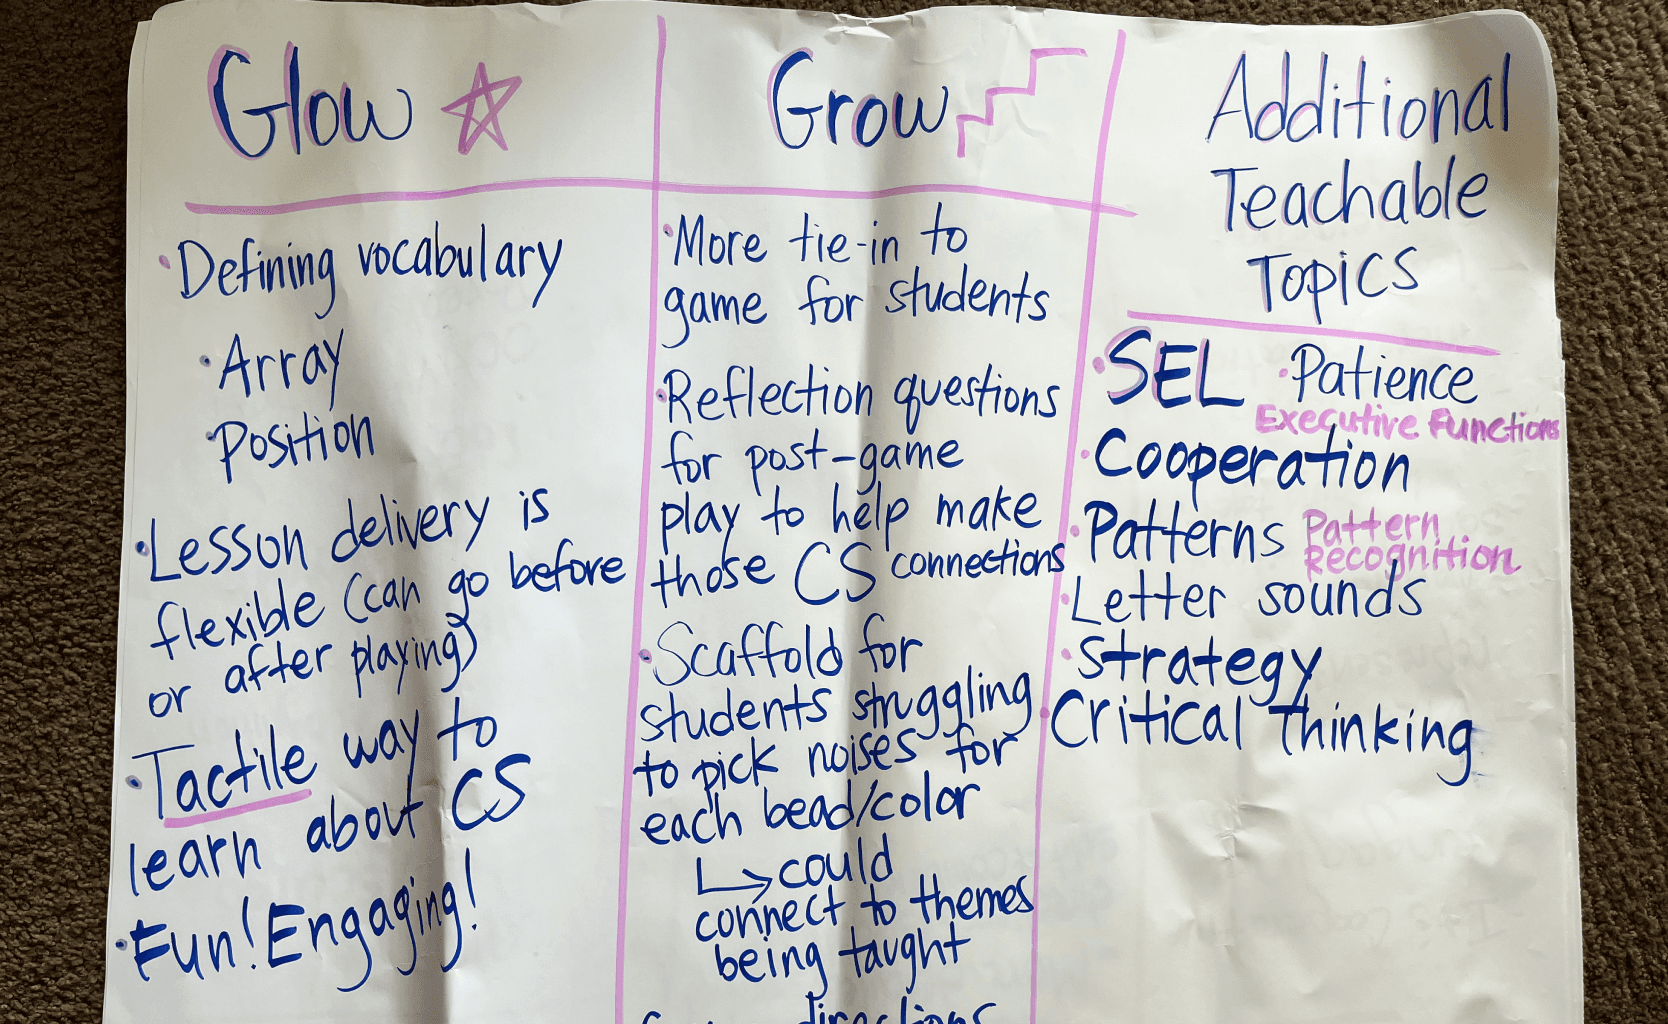 Glow
• Defining vocabulary
• Array
• Position
• Lesson delivery is
flexible (can go before
or after playing)
• Tactile way to
learn about CS
• Fun! Engaging!
Grow
• More tie-in to
game for students
• Reflection questions
for post-game
play to help make
those CS connections
• Scaffold for
students struggling
to pick noises for
each bead/color
↳ could
connect to themes
being taught
directions
Additional
Teachable
Topics
• SEL • Patience
Executive Functions
• Cooperation
• Patterns Pattern
Recognition
• Letter sounds
• Strategy
• Critical Thinking